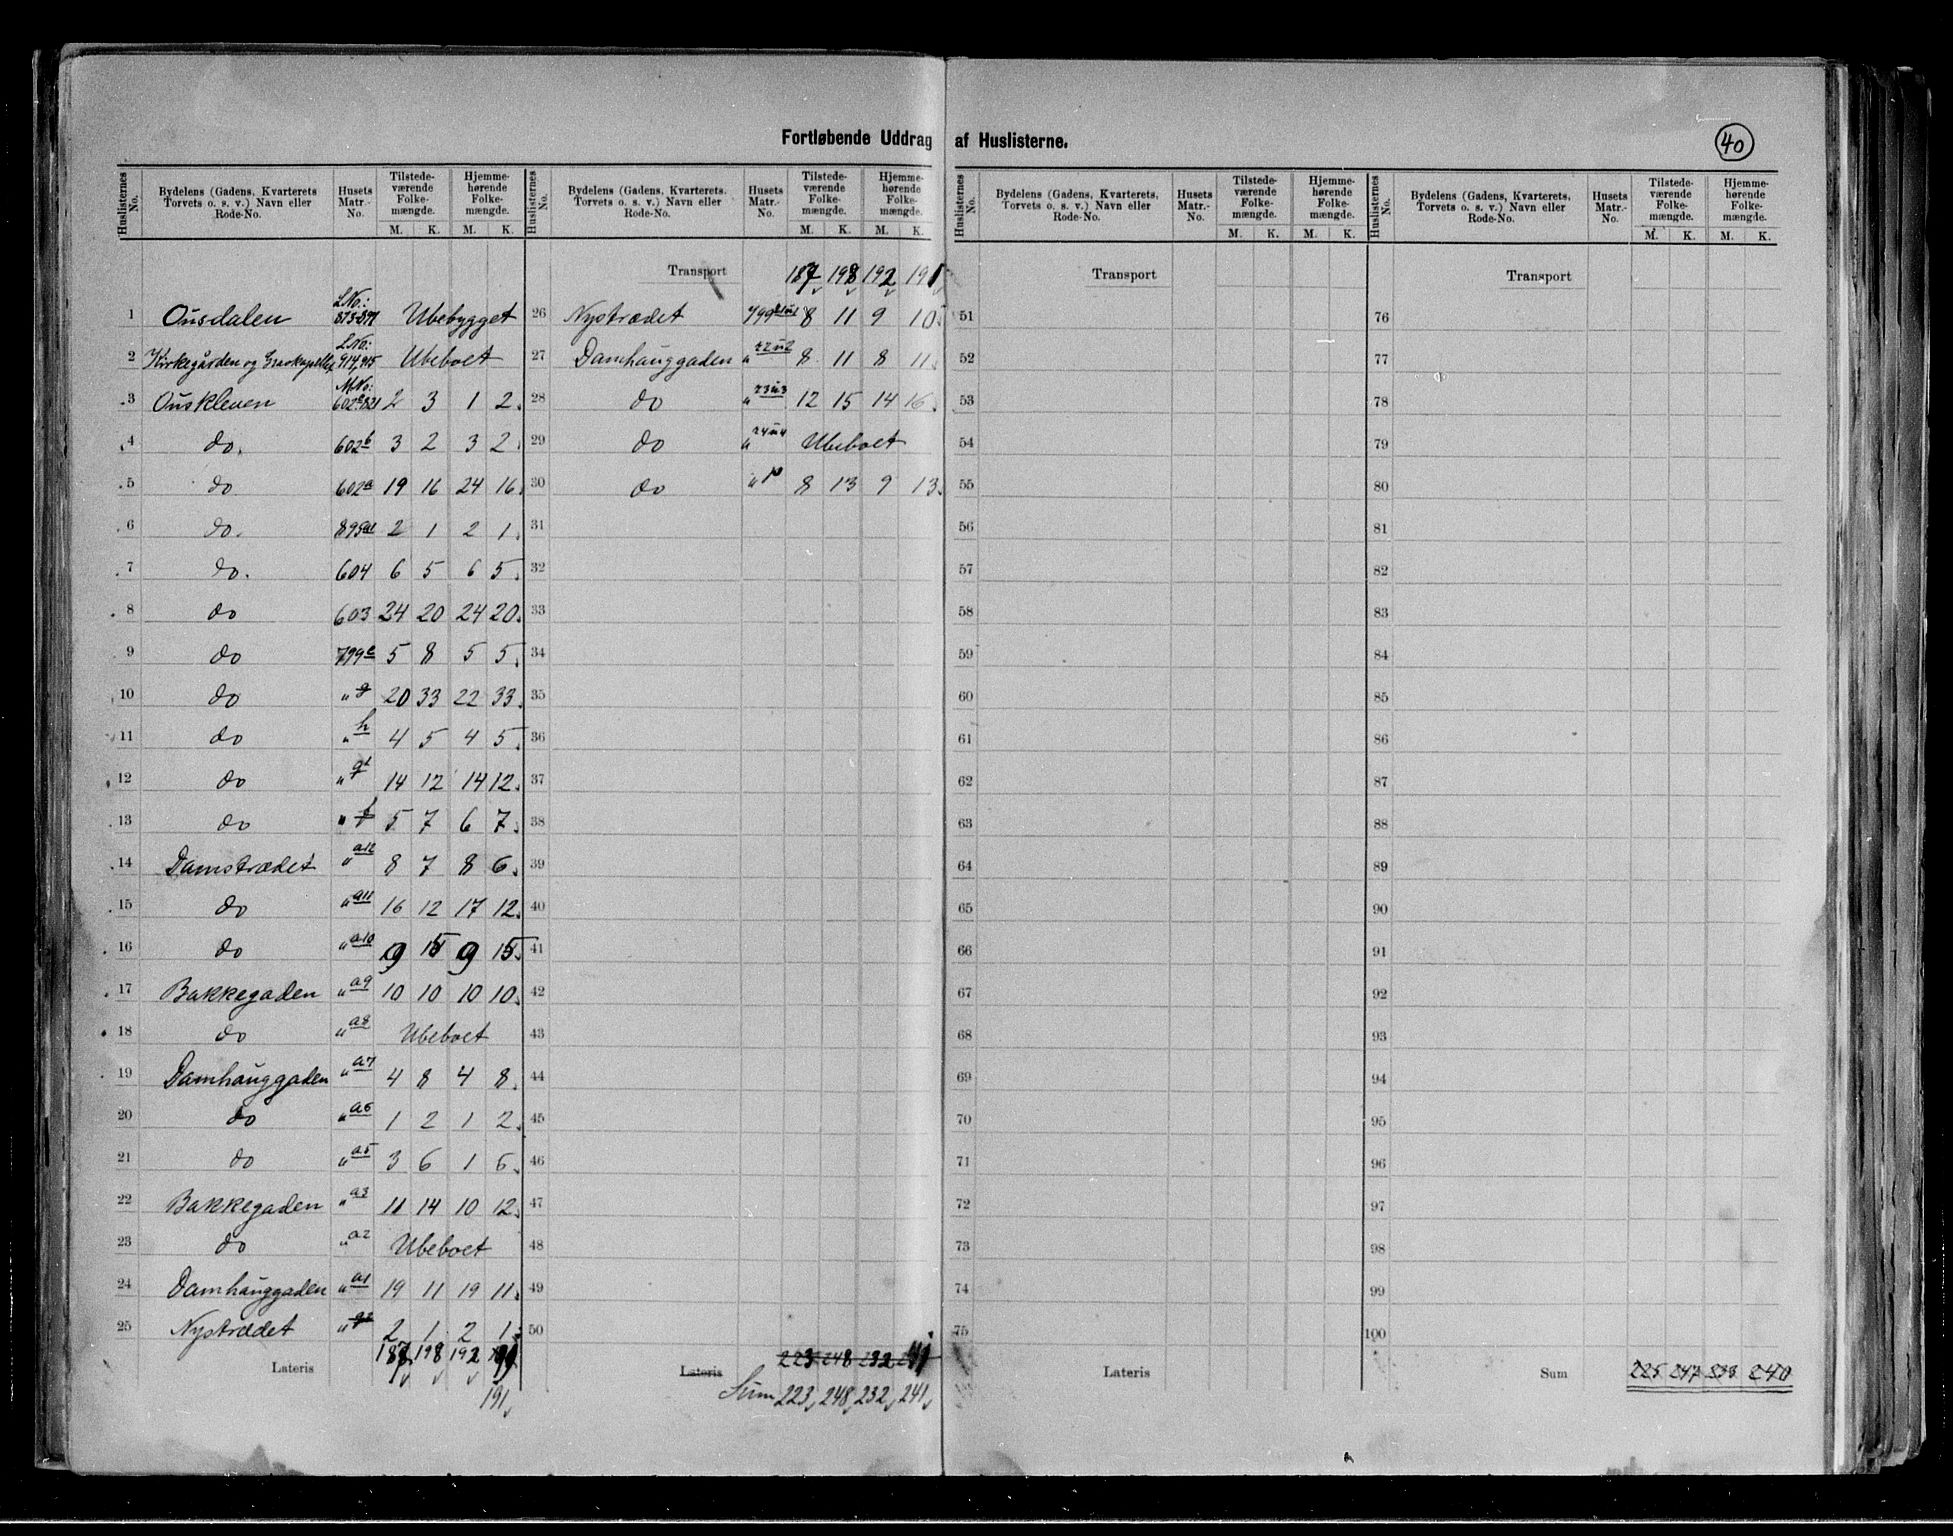 Fortløbende Uddrag af Huslisterne.
40
Huslisternes No. Bydelens (Gadens, Kvarterets Torvets o. s. v.) Navn eller Rode-No. Husets Matr.-No. Tilstedeværende Folkemængde. M. K. Hjemmehørende Folkemængde. M. K.
1 Ousdalen L.No.: Ubebygget
2 Kirkegården og Gravkapellet L.No: 914, 915 Ubeboet
3 Ouskleven M.No: 2 3 1 2
4 do. 602b 3 2 3 2
5 do 602a 19 16 24 16
6 do. 895a1 2 1 2 1
7 do. 604 6 5 6 5
8 do 603 24 20 24 20
9 do 799e 5 8 5 5
10 do " g 20 33 22 33
11 do " h 4 5 4 5
12 do " 14 12 14 12
13 do " f 5 7 6 7
14 Damstrædet " a12 8 7 8 6
15 do " a11 16 12 17 12
16 do " a10 9 15 9 15
17 Bakkegaden " a9 10 10 10 10
18 do " a8 Ubeboet
19 Damhauggaden " a7 4 8 4 8
20 do " a6 1 2 1 2
21 do " a5 3 6 1 6
22 Bakkegaden " a3 11 14 10 12
23 do " a2 Ubeboet
24 Damhauggaden " a1 19 11 19 11
25 Nystrædet " 2 1 2 1
Lateris 187 198 192
191
Huslisternes No. Bydelens (Gadens, Kvarterets. Torvets o. s. v.) Navn eller Rode-No. Husets Matr.-No. Tilstedeværende Folkemængde. M. K. Hjemmehørende Folkemængde. M. K.
Transport 187 198 192 191
26 Nystrædet 799 8 11 9 10
27 Damhauggaden " 8 11 8 11
28 do " 12 15 14 16
29 do " Ubeboet
30 do " 8 13 9 13
31
32
33
34
35
36
37
38
39
40
41
42
43
44
45
46
47
48
49
50
Lateris 223 248 232 241
Sum 223 248 232 241
Huslisternes No. Bydelens (Gadens, Kvarterets, Torvets o. s. v.) Navn eller Rode-No. Husets Matr.-No. Tilstedeværende Folkemængde. M. K. Hjemmehørende Folkemængde. M. K.
Transport
51
52
53
54
55
56
57
58
59
60
61
62
63
64
65
66
67
68
69
70
71
72
73
74
75
Lateris
Huslisternes No. Bydelens (Gadens, Kvarterets, Torvets o. s. v.) Navn eller Rode-No. Husets Matr.-No. Tilstedeværende Folkemængde. M. K. Hjemmehørende Folkemængde. M. K.
Transport
76
77
78
79
80
81
82
83
84
85
86
87
88
89
90
91
92
93
94
95
96
97
98
99
100
Sum 225 247 233 240